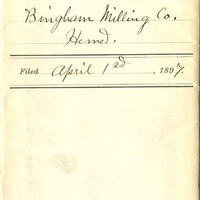 Bingham Milling Co.
Filed April 1st, 1897.